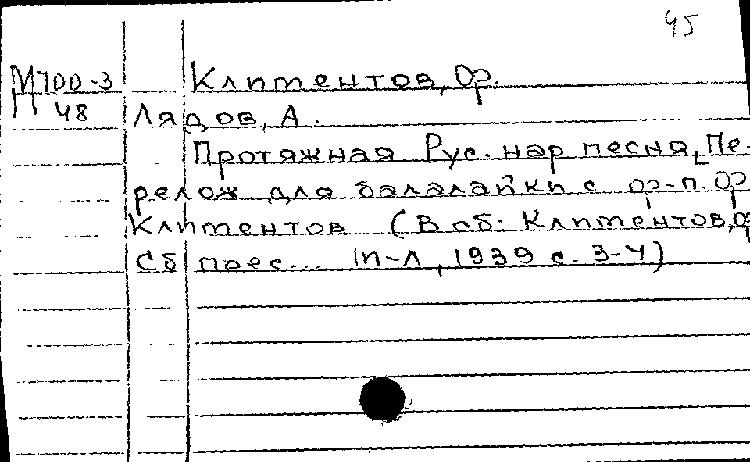 45
М700-3 Климентов, Ф.
П48 Лядов, А.
Протяжная Рус. нар песня, [Пе-
релож для балалайки с ф-п. Ф
Климентов (В сб: Климентов, Ф
Сб пьес... М-Л, 1939 с. 3-4)